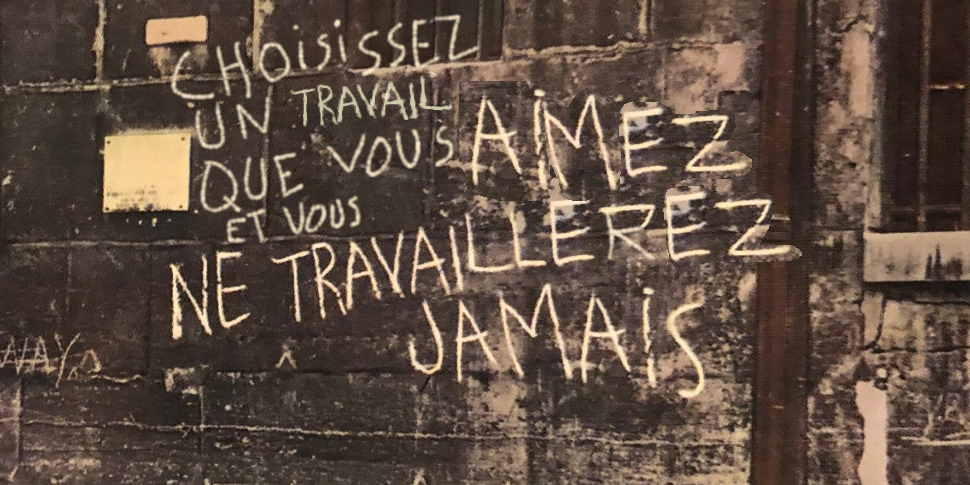 CHOISISSEZ
UN TRAVAIL
QUE VOUS AIMEZ
ET VOUS
NE TRAVAILLEREZ
JAMAIS